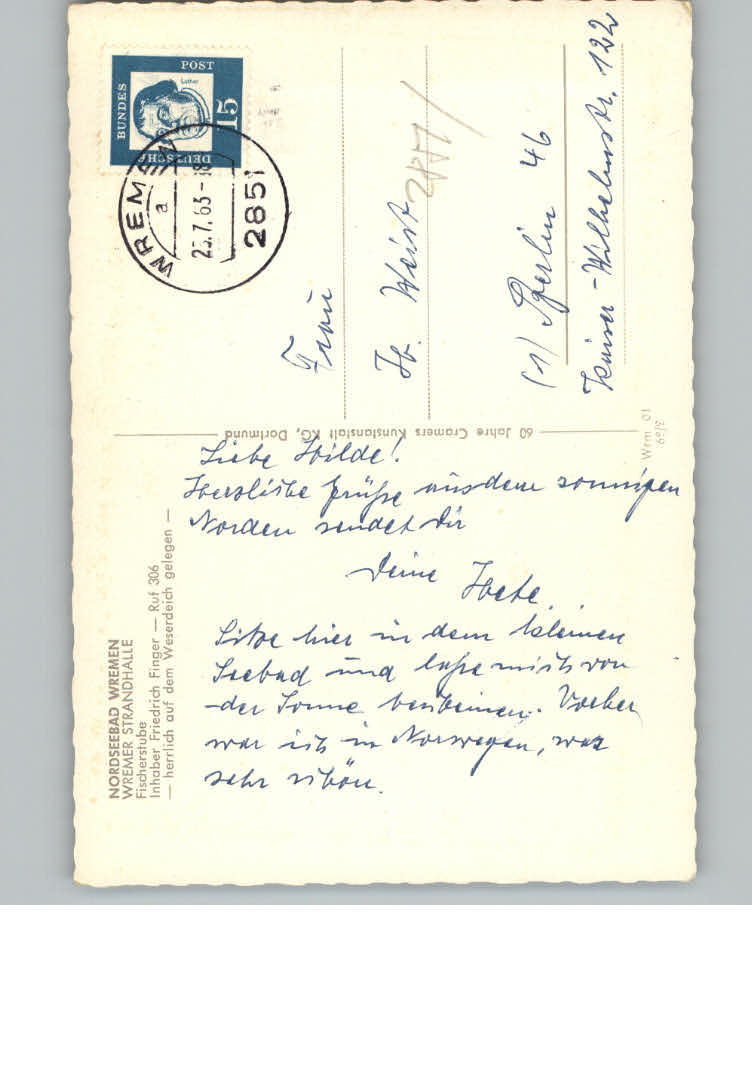 NORDSEEBAD WREMEN
WREMER STRANDHALLE
Fischerstube
Inhaber Friedrich Finger — Ruf 306
— herrlich auf dem Weserdeich gelegen —
Liebe Hilde!
Herzliche Grüße aus dem sonnigen
Norden sendet Dir
Deine Hete.
Sitze hier in dem kleinen
Seebad und lasse mich von
der Sonne bescheinen. Vorher
war ich in Norwegen, war
sehr schön.
60 Jahre Cramers Kunstanstalt KG, Dortmund
Wrm 01
3/69
DEUTSCHE
BUNDES
POST
15
Luther
WREMEN
a
23.7.63-18
2851
Frau
H. Weist
(1) Berlin 46
Kaiser-Wilhelmstr. 122